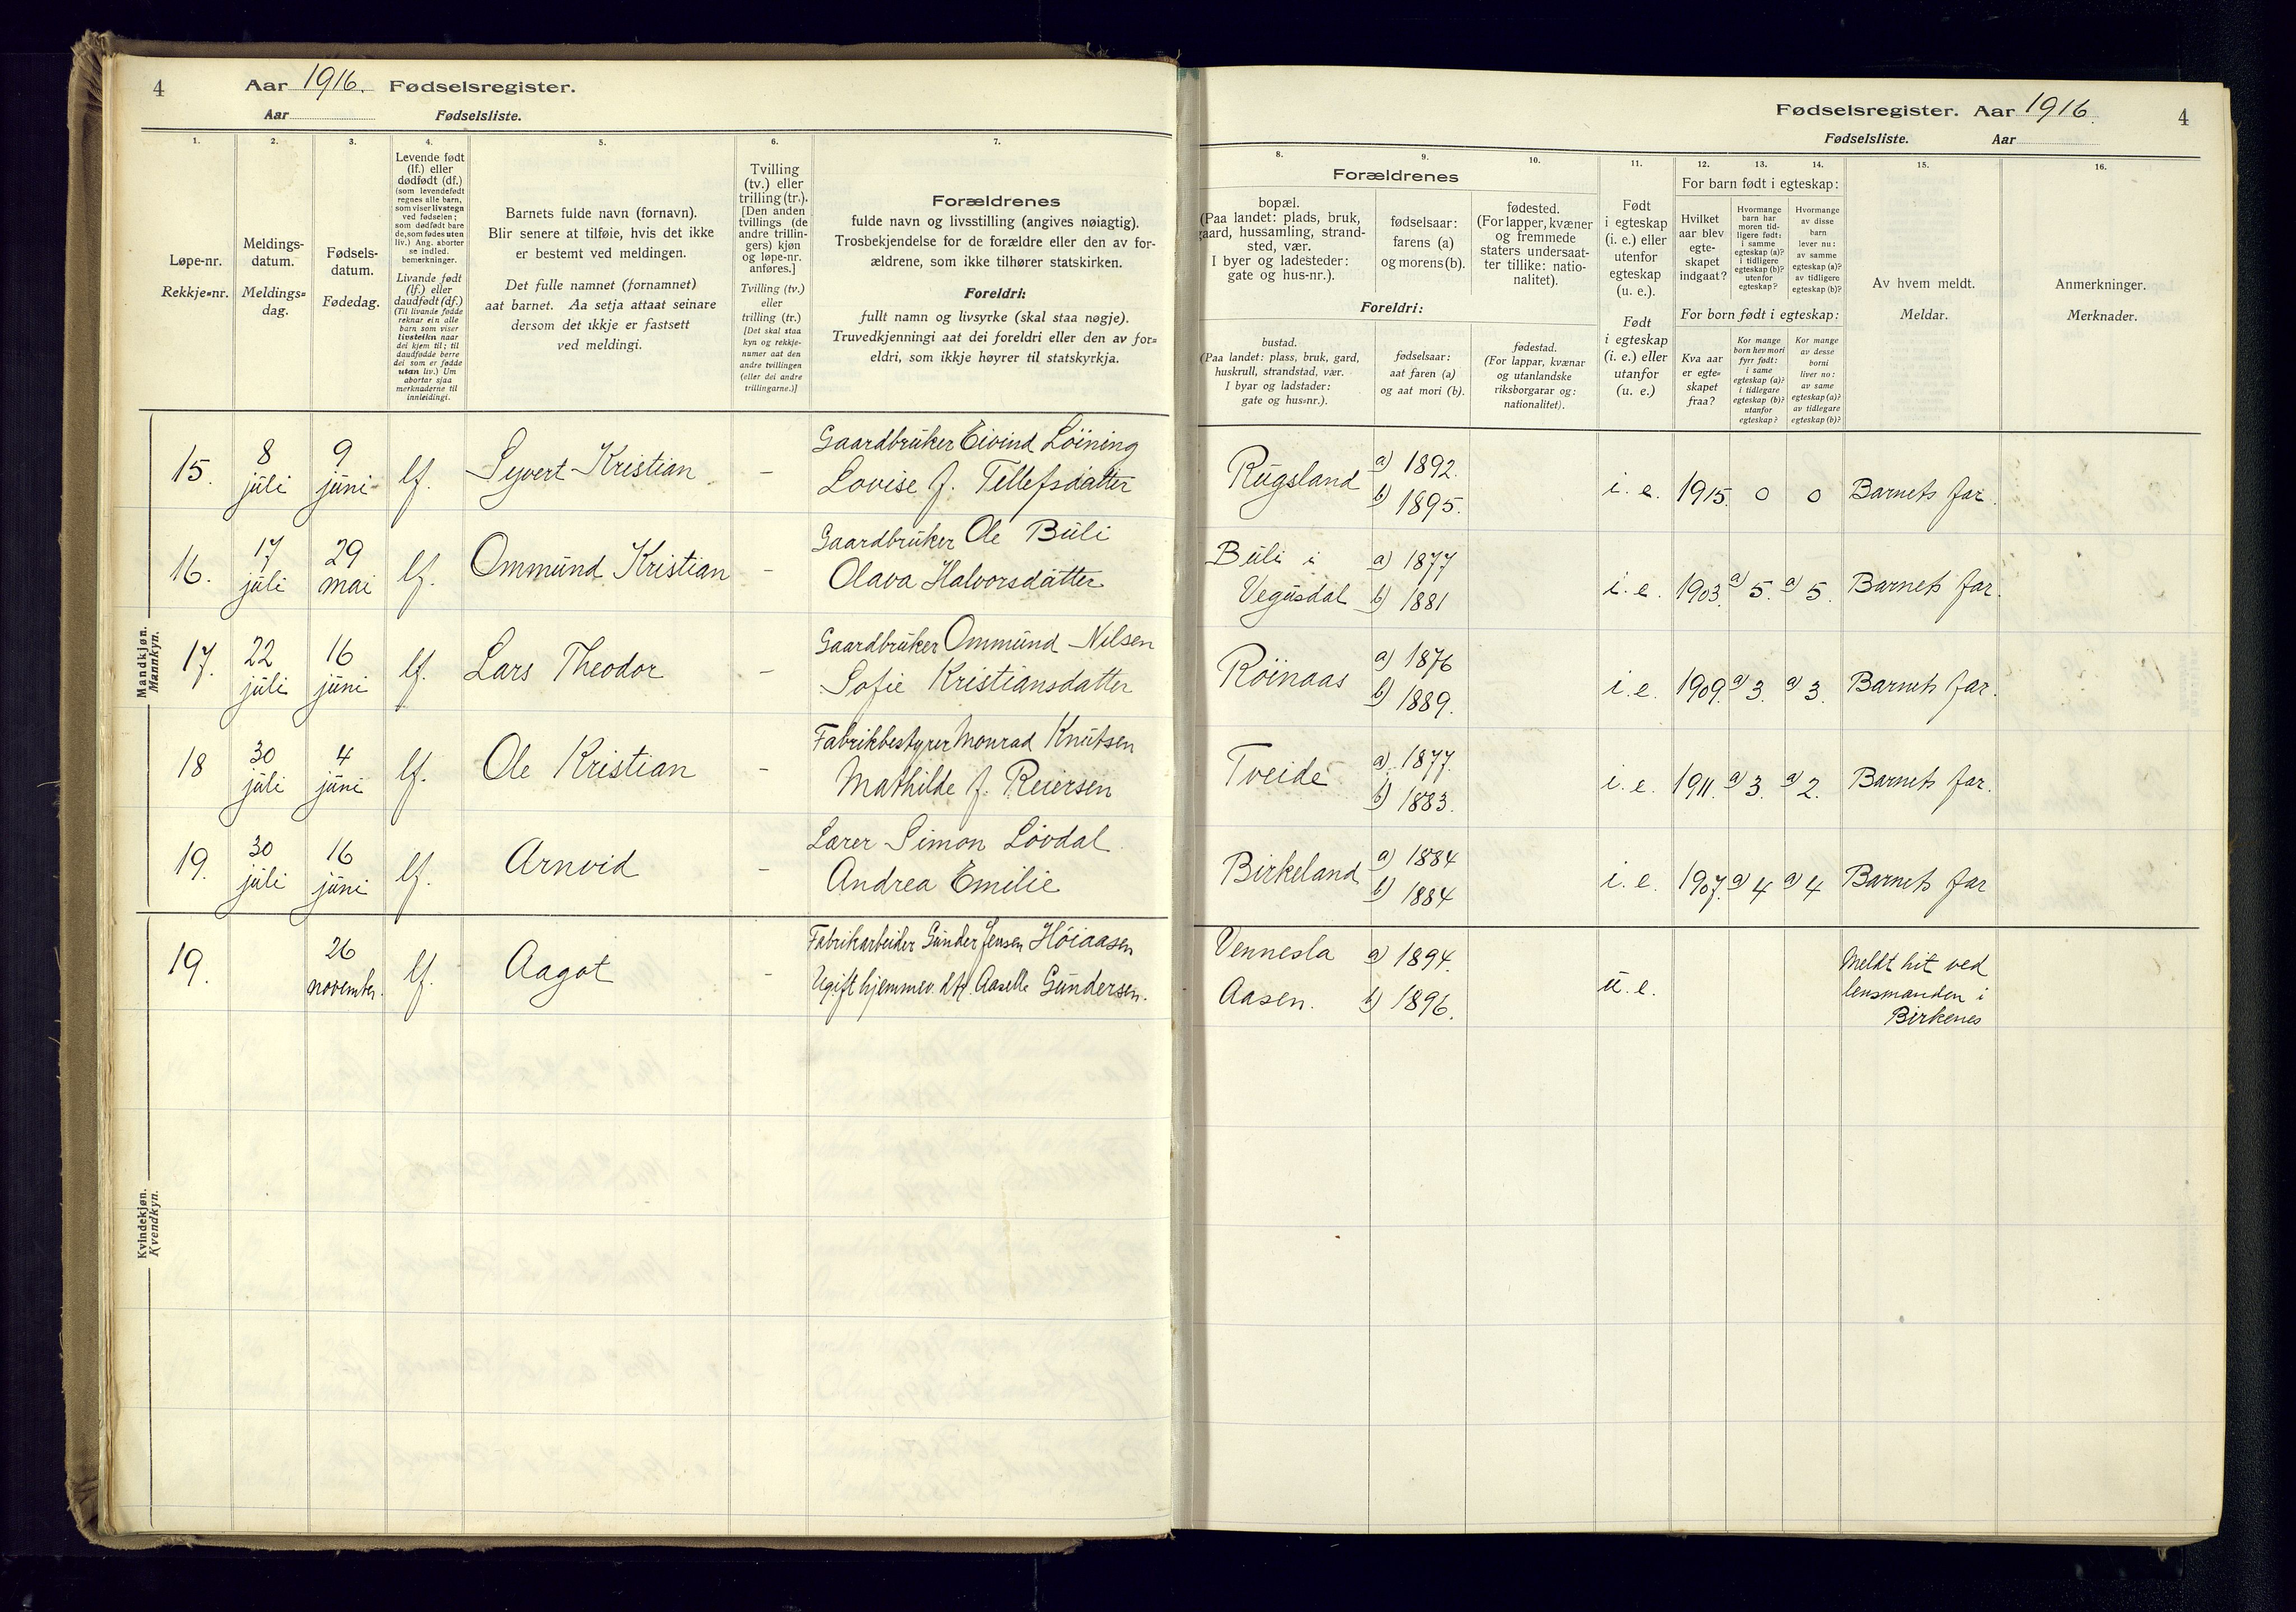 4
Aar 1916. Fødselsregister.
Aar Fødselsliste.
1.
2.
3.
4.
5.
6.
7.
Løpe-nr.
Rekkje=nr.
Meldings-
datum.
Meldings=
dag.
Fødsels-
datum.
Fødedag.
Levende født
(lf.) eller
dødfødt (df.)
(som levendefødt
regnes alle barn,
som viser livstegn
ved fødselen;
som dødfødt bare
de, som fødes uten
liv.) Ang. aborter
se indled.
bemerkninger.
Livande født
(lf.) eller
daudfødt (df.)
(Til livande fødde
reknar ein alle
barn som viser
livsteikn naar
dei kjem til; til
daudfødde berre
dei som er fødde
utan liv.) Um
abortar sjaa
merknaderne til
innleidingi.
Barnets fulde navn (fornavn).
Blir senere at tilføie, hvis det ikke
er bestemt ved meldingen.
Det fulle namnet (fornamnet)
aat barnet. Aa setja attaat seinare
dersom det ikkje er fastsett
ved meldingi.
Tvilling
(tv.) eller
trilling (tr.).
[Den anden
tvillings (de
andre trillin-
gers) kjøn
og løpe-nr.
anføres.]
Tvilling (tv.)
eller
trilling (tr.)
[Det skal staa
kyn og rekkje-
numer aat den
andre tvillingen
(eller dei andre
trillingarne.)]
Forældrenes
fulde navn og livsstilling (angives nøiagtig).
Trosbekjendelse for de forældre eller den av for-
ældrene, som ikke tilhører statskirken.
Foreldri:
fullt namn og livsyrke (skal staa nøgje).
Truvedkjenningi aat dei foreldri eller den av for=
eldri, som ikkje høyrer til statskyrkja.
Mandkjøn.
Mannkyn.
15. 8 juli 9 juni lf. Syvert Kristian – Gaardbruker Eivind Löining
Lovise f. Tellefsdatter
16. 17 juli 29 mai lf. Ommund Kristian – Gaardbruker Ole Buli
Olava Halvorsdatter
17. 22 juli 16 juni lf. Lars Theodor – Gaardbruker Ommund Nilsen
Sofie Kristiansdatter
18 30 juli 4 juni lf. Ole Kristian – Fabrikbestyrer Monrad Knutsen
Mathilde f. Reiersen
19. 30 juli 16 juni lf. Arnvid – Lærer Simon Lövdal
Andrea Emilie
Kvindekjøn.
Kvendkyn.
19. 26 november. lf. Aagot – Fabrikarbeider Gunder Jensen Höiaasen
Ugift hjemmev. dtr. Aaselle Gundersen.
Fødselsregister. Aar 1916. 4
Fødselsliste. Aar
8.
9.
10.
11.
12.
13.
14.
15.
16.
Forældrenes
bopæl.
(Paa landet: plads, bruk,
gaard, hussamling, strand-
sted, vær.
I byer og ladesteder:
gate og hus-nr.).
fødselsaar:
farens (a)
og morens (b).
fødested.
(For lapper, kvæner
og fremmede
staters undersaat-
ter tillike: natio-
nalitet).
Foreldri:
bustad.
(Paa landet: plass, bruk, gard,
huskrull, strandstad, vær.
I byar og ladstader:
gate og hus=nr.).
fødselsaar:
aat faren (a)
og aat mori (b).
fødestad.
(For lappar, kvænar
og utanlandske
riksborgarar og:
nationalitet).
Født
i egteskap
(i. e.) eller
utenfor
egteskap
(u. e.).
Født
i egteskap
(i. e.) eller
utanfor
(u. e.)
For barn født i egteskap:
Hvilket
aar blev
egte-
skapet
indgaat?
Hvormange
barn har
moren tid-
ligere født:
i samme
egteskap (a)?
i tidligere
egteskap (b)?
utenfor
egteskap?
Hvormange
av disse
barn
lever nu:
av samme
egteskap (a)?
av tidligere
egteskap (b)?
For born født i egteskap:
Kva aar
er egte=
skapet
fraa?
Kor mange
born hev mori
fyrr født:
i same
egteskap (a)?
i tidlegare
egteskap (b)?
utanfor
egteskap?
Kor mange
av desse
borni
liver no:
av same
egteskap (a)?
av tidlegare
egteskap (b)?
Av hvem meldt.
Meldar.
Anmerkninger.
Merknader.
Rugsland a) 1892. b) 1895. i. e. 1915. 0 0 Barnets far.
Buli i Vegusdal a) 1877 b) 1881 i. e. 1903. a) 5. a) 5. Barnets far.
Röinaas a) 1876 b) 1889. i. e. 1909. a) 3. a) 3. Barnets far.
Tveide a) 1877. b) 1883. i. e. 1911. a) 3. a) 2. Barnets far.
Birkeland a) 1884 b) 1884 i. e. 1907. a) 4 a) 4 Barnets far
Vennesla a) 1894.
Aasen. b) 1896. u. e. Meldt hit ved
lensmanden i
Birkenes